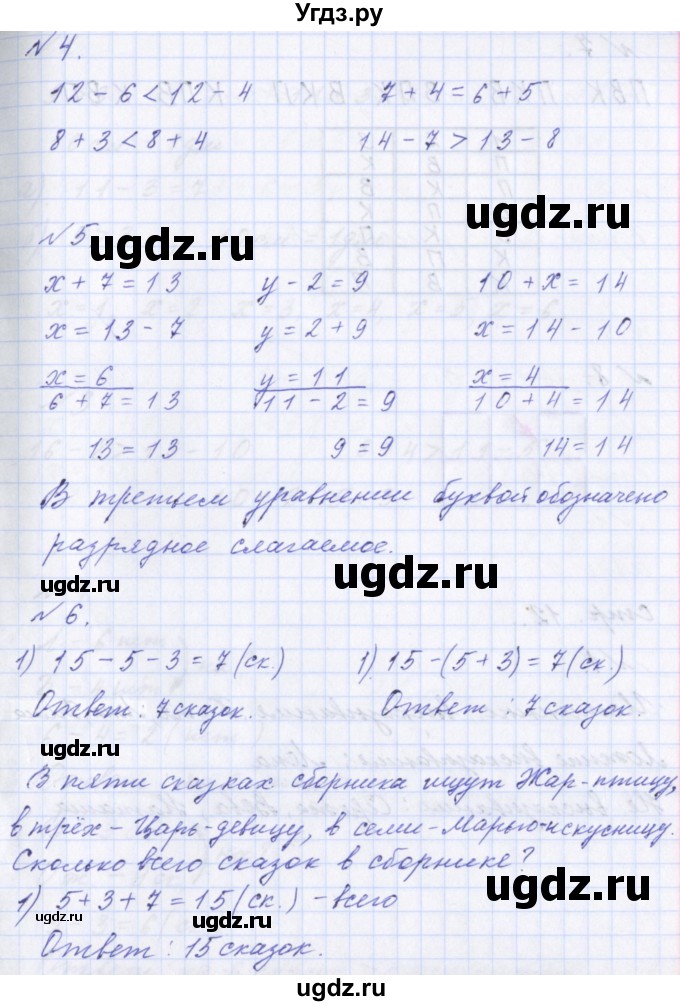 Угдз.ру
№ 4.
12 - 6 < 12 - 4 7 + 4 = 6 + 5
8 + 3 < 8 + 4 14 - 7 > 13 - 8
ugdz.ru
№ 5
ugdz.ru
x + 7 = 13 y - 2 = 9 10 + x = 14
x = 13 - 7 y = 2 + 9 x = 14 - 10
x = 6 y = 11 x = 4
6 + 7 = 13 11 - 2 = 9 10 + 4 = 14
13 = 13 9 = 9 14 = 14
В третьем уравнении буквой обозначено
разрядное слагаемое.
ugdz.ru
ugdz.ru
№ 6.
1) 15 - 5 - 3 = 7 (ск.) 1) 15 - (5 + 3) = 7 (ск.)
Ответ: 7 сказок. Ответ: 7 сказок.
ugdz.ru
ugdz.ru
В пяти сказках сборника ищут Жар-птицу,
в трёх - Царь-девицу, в семи - Марью-искусницу.
Сколько всего сказок в сборнике?
ugdz.ru
1) 5 + 3 + 7 = 15 (ск.) - всего
ugdz.ru
ugdz.ru
Ответ: 15 сказок.
ugdz.ru